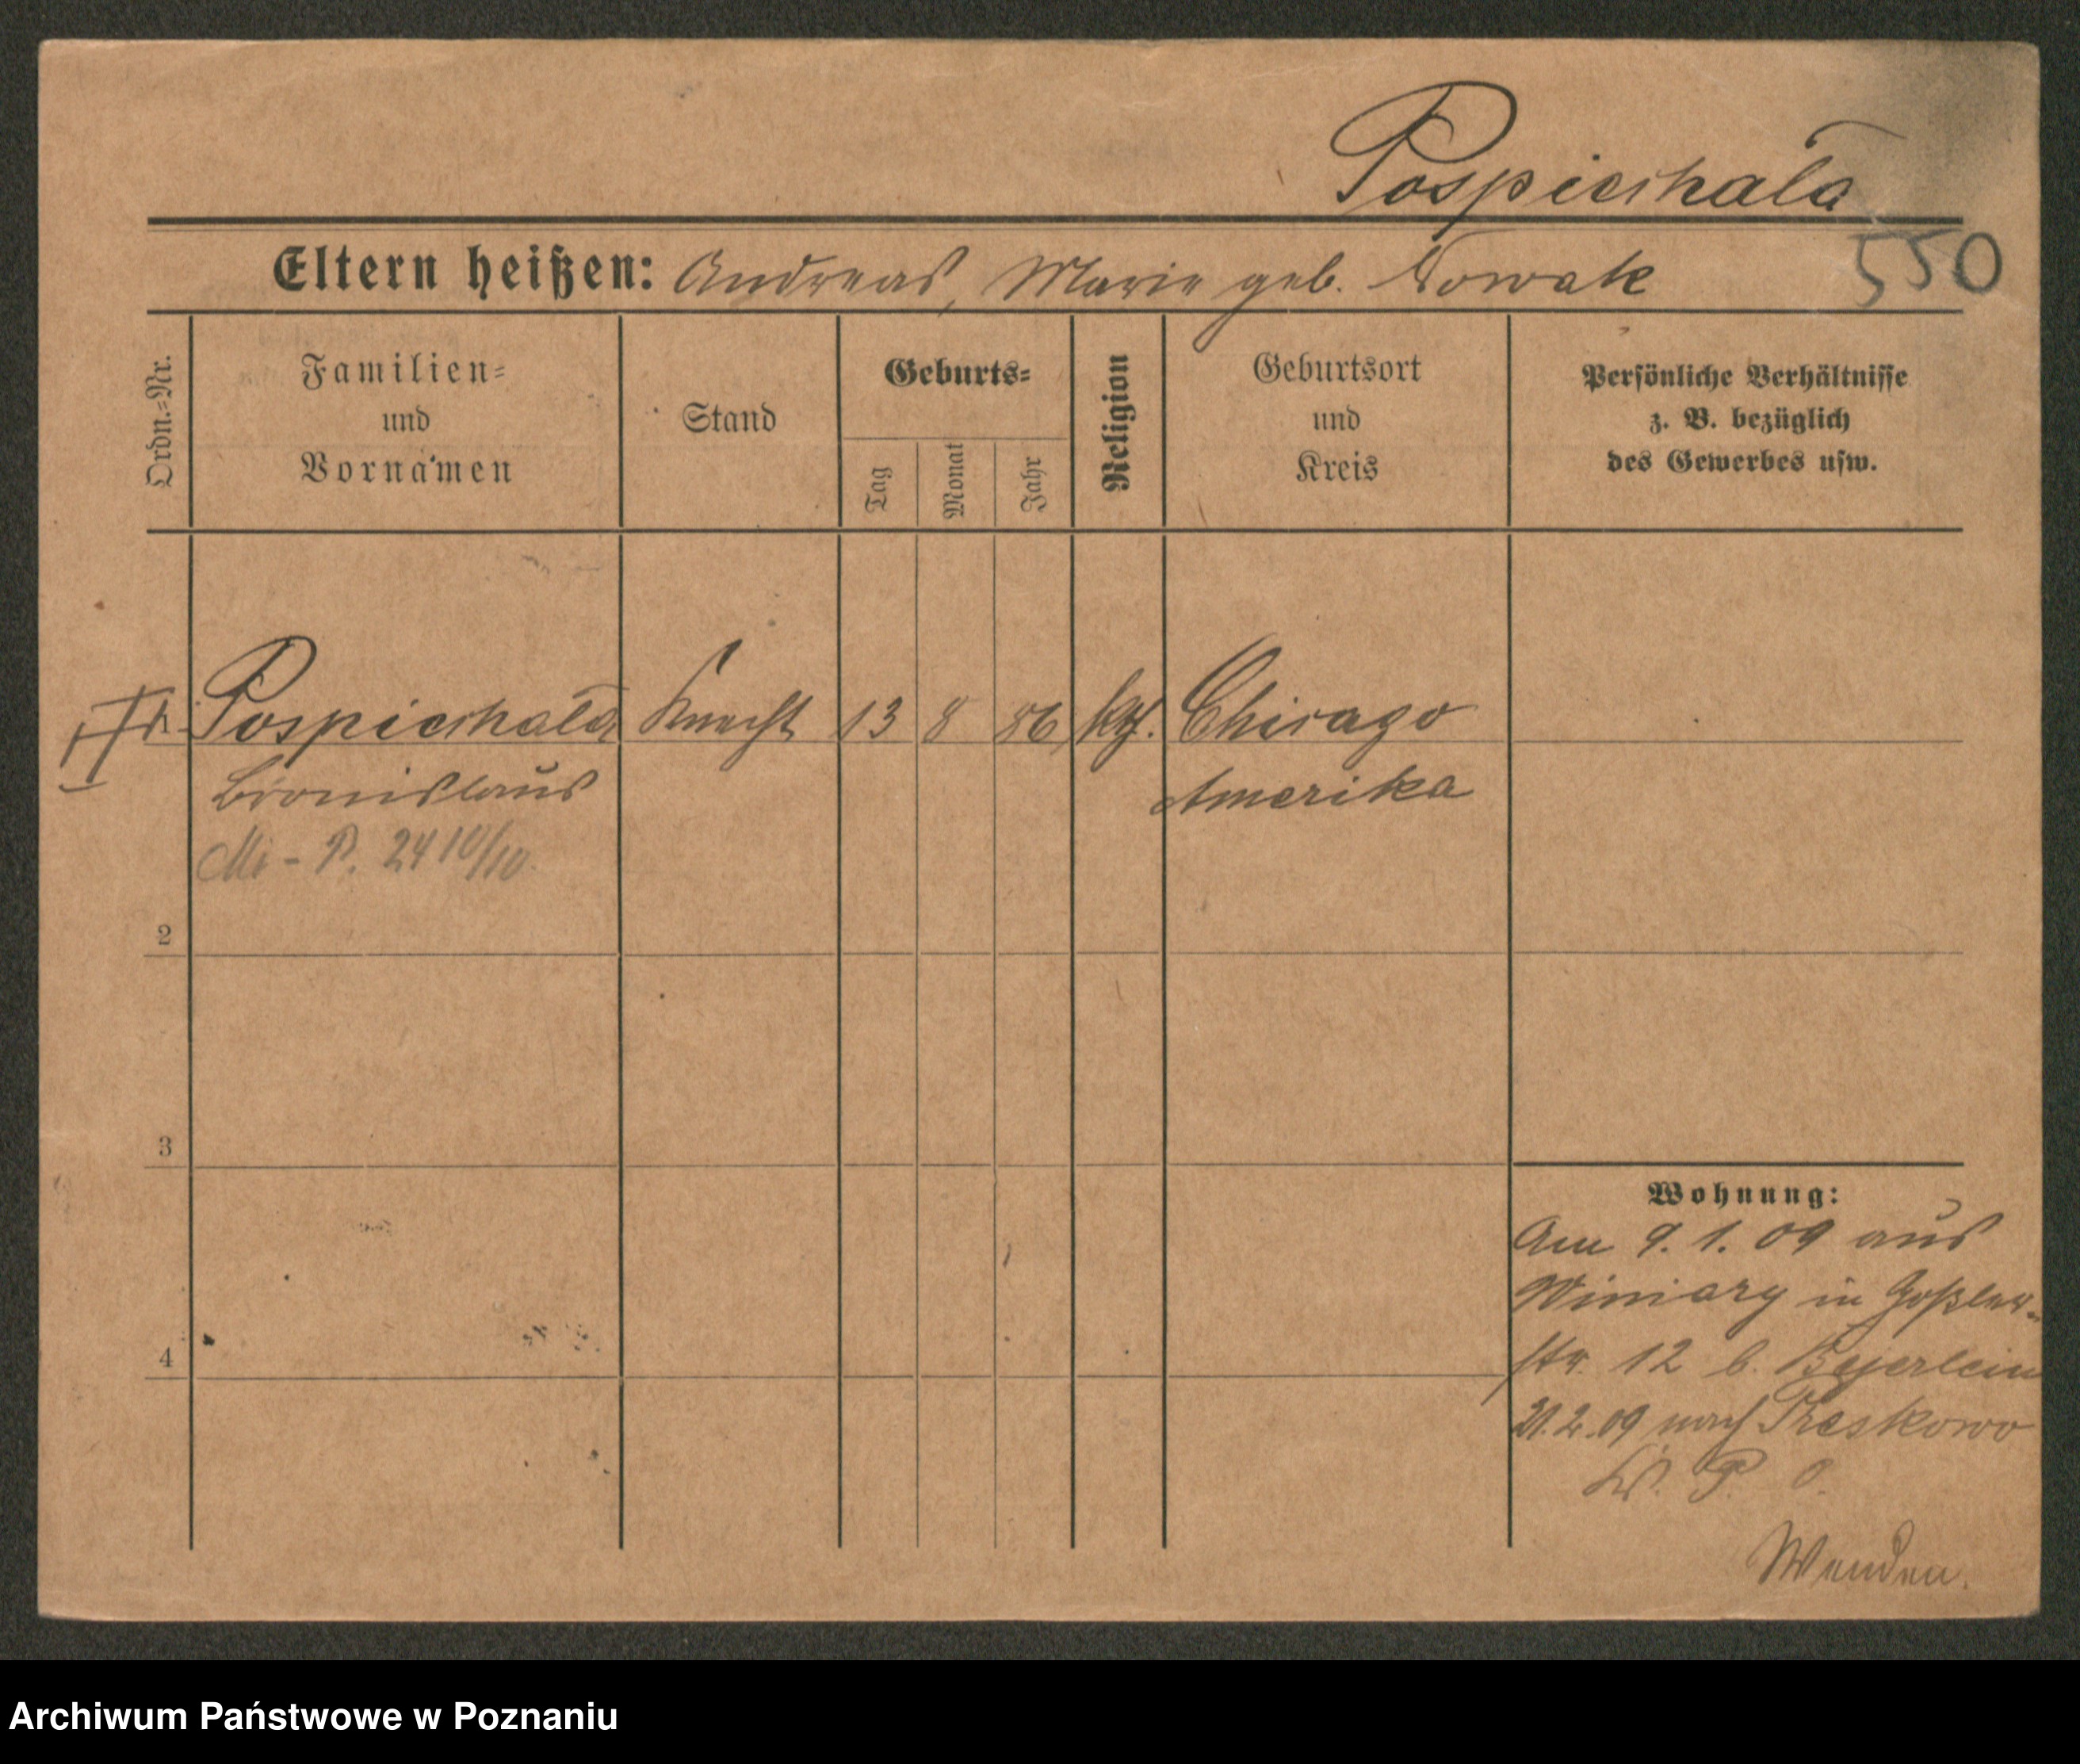 Pospieshala
550
Eltern heißen: Andreas, Marie geb. Nowak
Ordn.-Nr.
Familien-
und
Vornamen
Stand
Geburts-
Tag
Monat
Jahr
Religion
Geburtsort
und
Kreis
Persönliche Verhältnisse
z. B. bezüglich
des Gewerbes usw.
Pospieshala Knecht 13 8 86 kth. Chicago
Bronislaus Amerika
Mi - P. 24 10/10.
2
3
4
Wohnung:
Am 9. 1. 09 aus
Winiary in Goßler-
str. 12 b. Beyerlein
21.2.09 nach Treskowo
Kr. P. O.
Wenden.
Archiwum Państwowe w Poznaniu